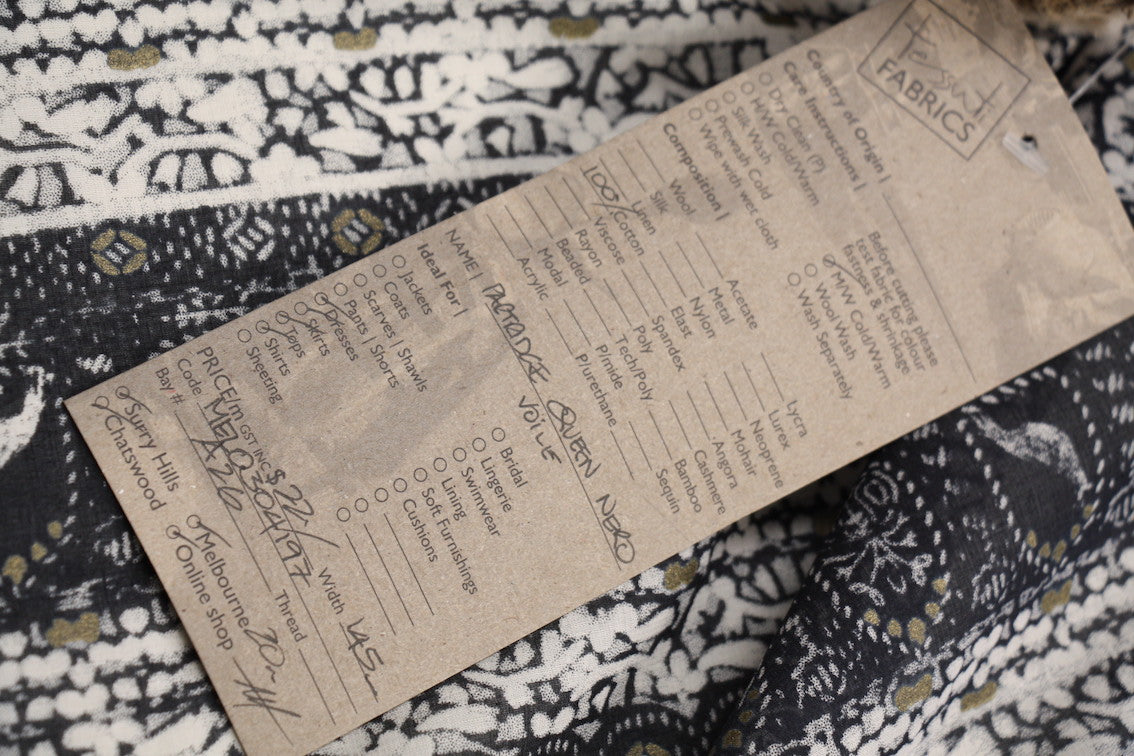 FABRICS
Country of Origin |
Care Instructions |
Dry Clean (?)
H/W Cold/Warm
Silk Wash
Prewash Cold
Wipe with wet cloth
Before cutting please
test fabric for colour
fastness & shrinkage
M/W Cold/Warm
Wool Wash
Wash Separately
Composition |
Wool
Silk
Linen
100% Cotton
Viscose
Rayon
Beaded
Modal
Acrylic
Acetate
Metal
Nylon
Elast
Spandex
Poly
Tech/Poly
P/mide
P/urethane
Lycra
Lurex
Neoprene
Mohair
Angora
Cashmere
Bamboo
Sequin
NAME | PARTRIDGE QUEEN NERO
VOILE
Ideal For |
Jackets
Coats
Scarves | Shawls
Pants | Shorts
Dresses
Skirts
Tops
Shirts
Sheeting
Bridal
Lingerie
Swimwear
Lining
Soft Furnishings
Cushions
PRICE/m GST INC $22/ Width 145
Code MELO304197 Thread
Bay # A26
Surry Hills
Chatswood
Melbourne 20m
Online shop